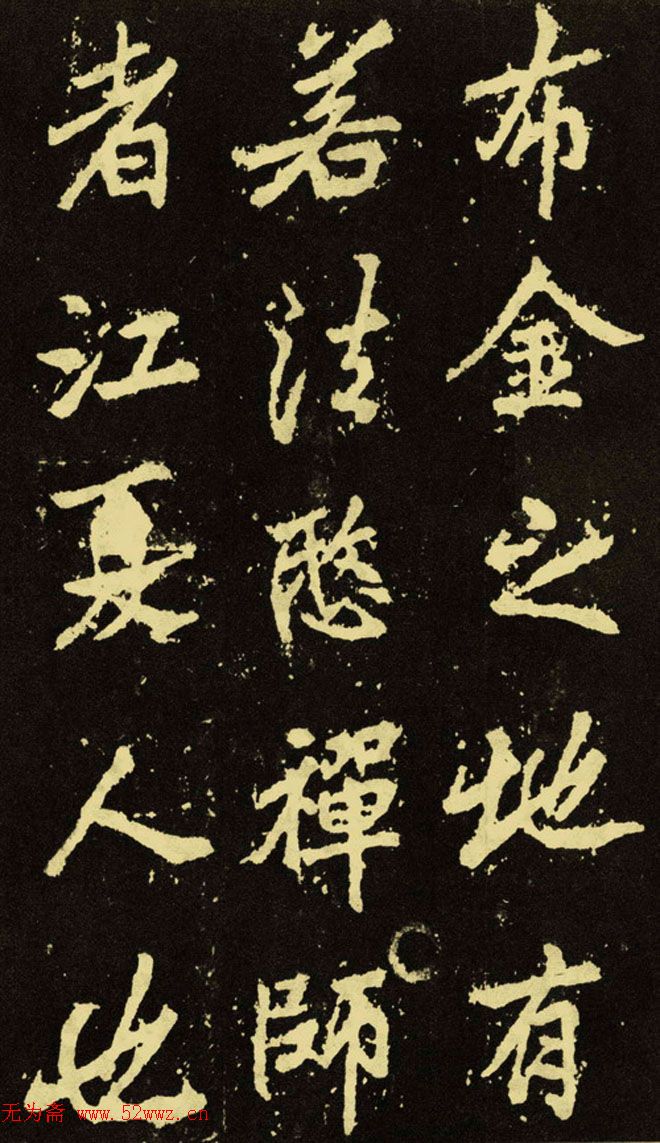 布金之地有
若法愍禪師
者江夏人也
无为斋 www.52wwz.cn